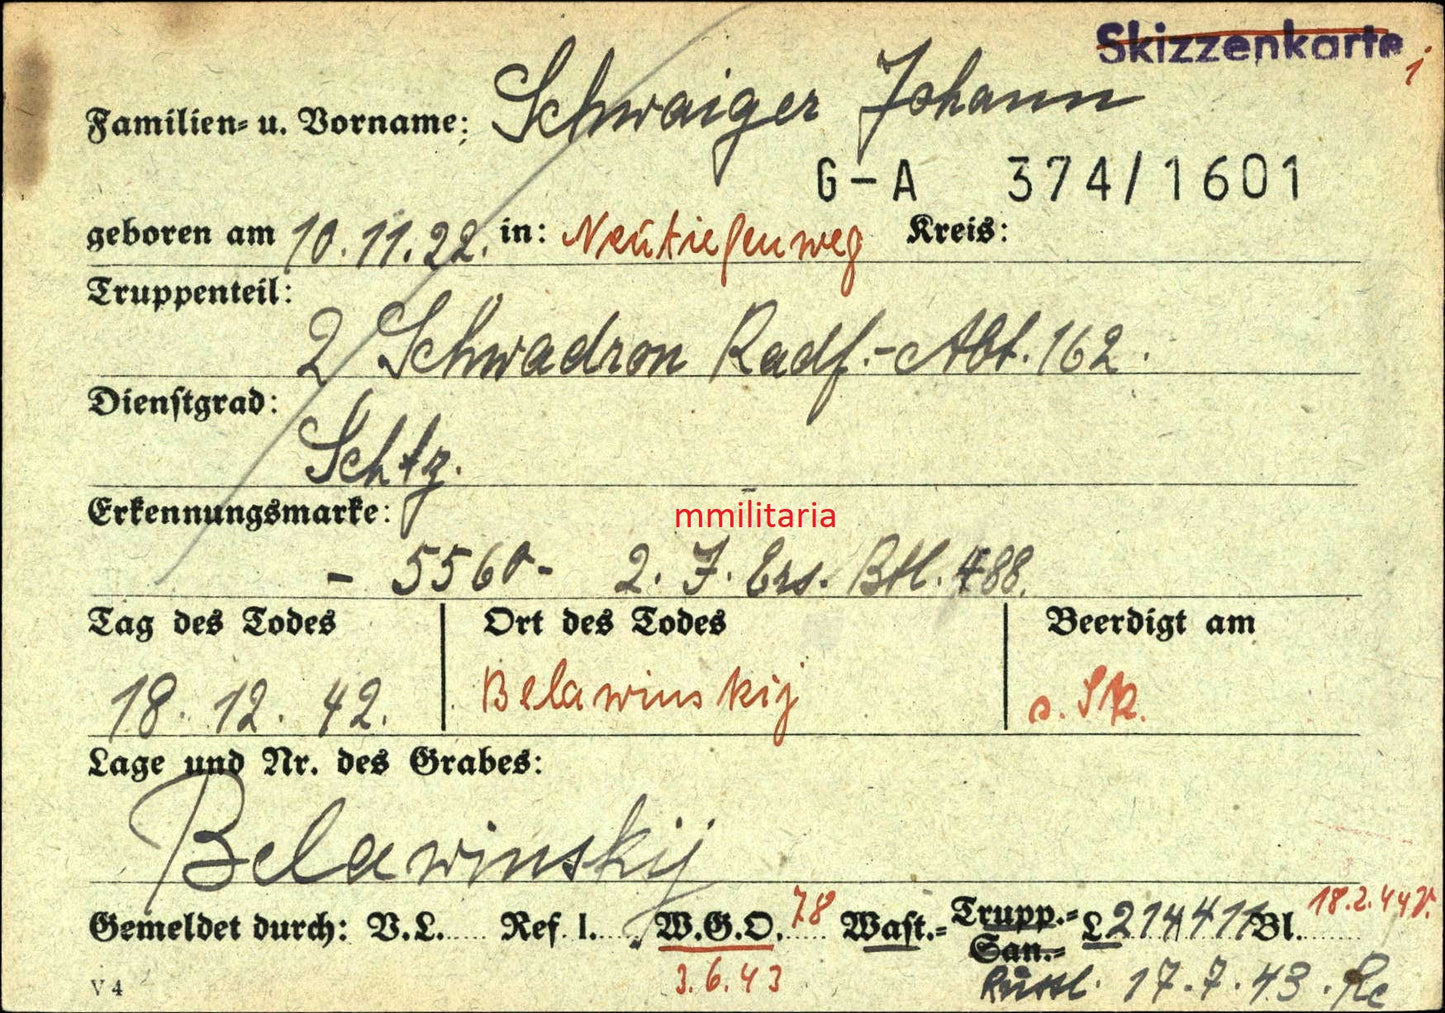 Skizzenkarte
Familien= u. Vorname: Schwaiger Johann
G-A 374/1601
geboren am 10.11.22. in: Kreis:
Truppenteil:
2/Schwadron Radf.-Abt. 162.
Dienstgrad:
Schtz.
Erkennungsmarke:
mmilitaria
- 5560 - 2. J. Ers. Btl. 488.
Tag des Todes Ort des Todes Beerdigt am
18. 12. 42. Belawinskij s. Sk.
Lage und Nr. des Grabes:
Belawinskij
Gemeldet durch: V.L. Ref. I. W.G.O. 78 Wast.= Trupp.= L 214411 Bl. 18.2.44
San.=
3.6.43 Russl. 17.7.43.
V 4